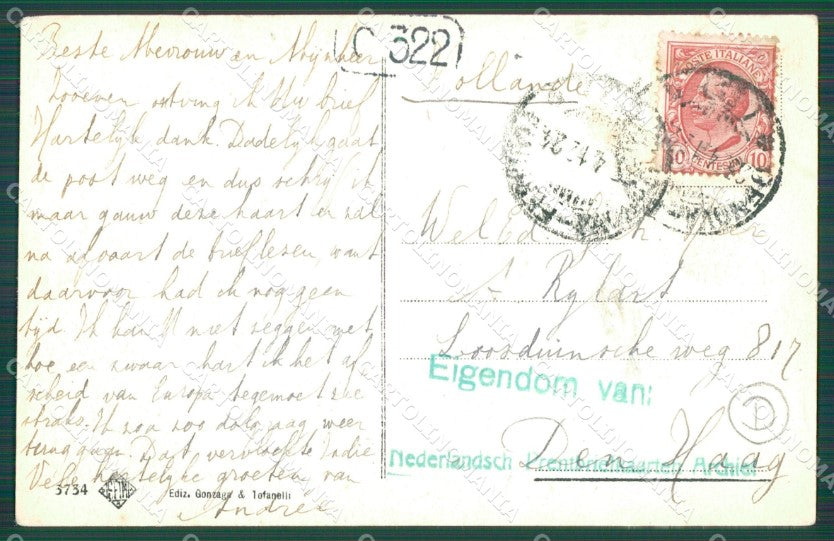 Beste Mevrouw en Mynheer
zoveven ontving ik Uw brief
Hartelyk dank. Dadelyk gaat
de post weg en dus schryf ik
maar gauw deze kaart en zal
na afvaart de brief lezen, want
daarvoor had ik nog geen
tyd. Ik kan U niet zeggen met
hoe een zwaar hart ik het af
scheid van Europa tegemoet zie
straks. Ik zou zoo dolgraag weer
teruggaan. Dat vervloekte Indie
Vele hartelyke groeten van
Andrée
3734
Ediz. Gonzaga & Tofanelli
C 322
Hollande
POSTE ITALIANE
10 CENTESIMI 10
4.12.24
GENOVA
A Rylart
Loosduinsche weg 817
Den Haag
Eigendom van:
Nederlandsch Prentbriefkaarten Archief
CARTOLINOMANIA